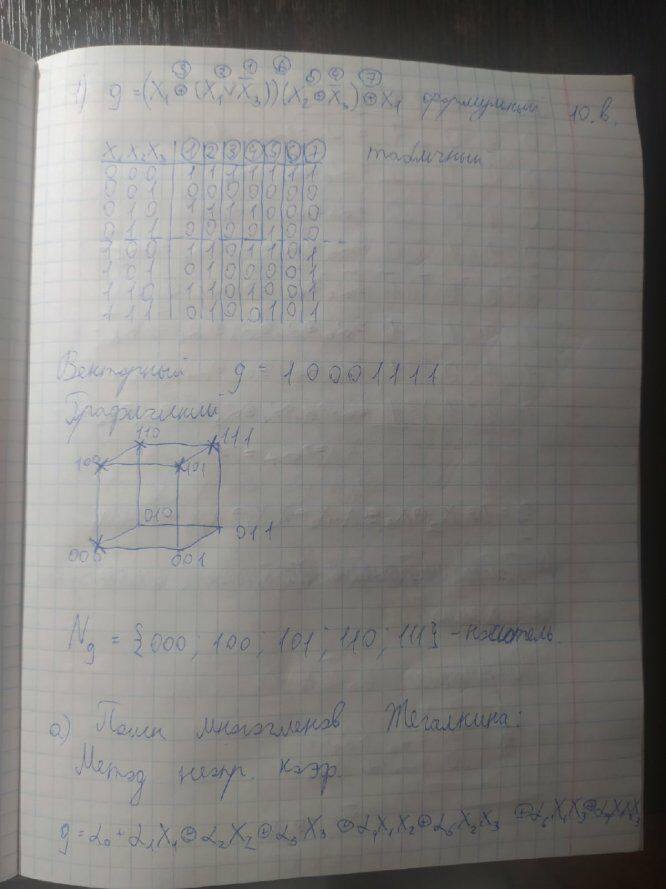 ③ ② ① ⑥ ⑤ ④ ⑦
1) g = (X₁ ⊕ (X₁ ∨ X̄₃)) (X₂ ⊕ X₃) ⊕ X₁ формульный 10.в.
X₁ X₂ X₃ ① ② ③ ④ ⑤ ⑥ ⑦ табличный
0 0 0 1 1 1 1 1 1 1
0 0 1 0 0 0 0 0 0 0
0 1 0 1 1 1 1 0 0 0
0 1 1 0 0 0 0 1 0 0
1 0 0 1 1 0 1 1 0 1
1 0 1 0 1 0 0 0 0 1
1 1 0 1 1 0 1 0 0 1
1 1 1 0 1 0 0 1 0 1
Векторный g = 1 0 0 0 1 1 1 1
Графический
110 111
100 101
010 011
000 001
N_g = {000; 100; 101; 110; 111} -
а) Полин многочленов Жегалкина:
Метод неопр. коэф.
g = α₀ + α₁X₁ ⊕ α₂X₂ ⊕ α₃X₃ ⊕ α₄X₁X₂ ⊕ α₅X₂X₃ ⊕ α₆X₁X₃ ⊕